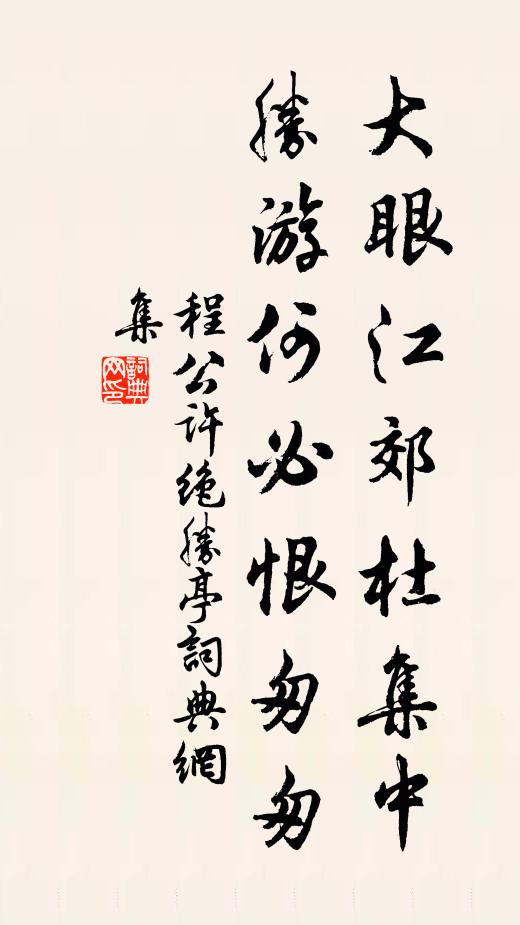 大眼江郊杜集中
勝游何必恨匆匆
程公許絶勝亭詞典網
集
詞典網印